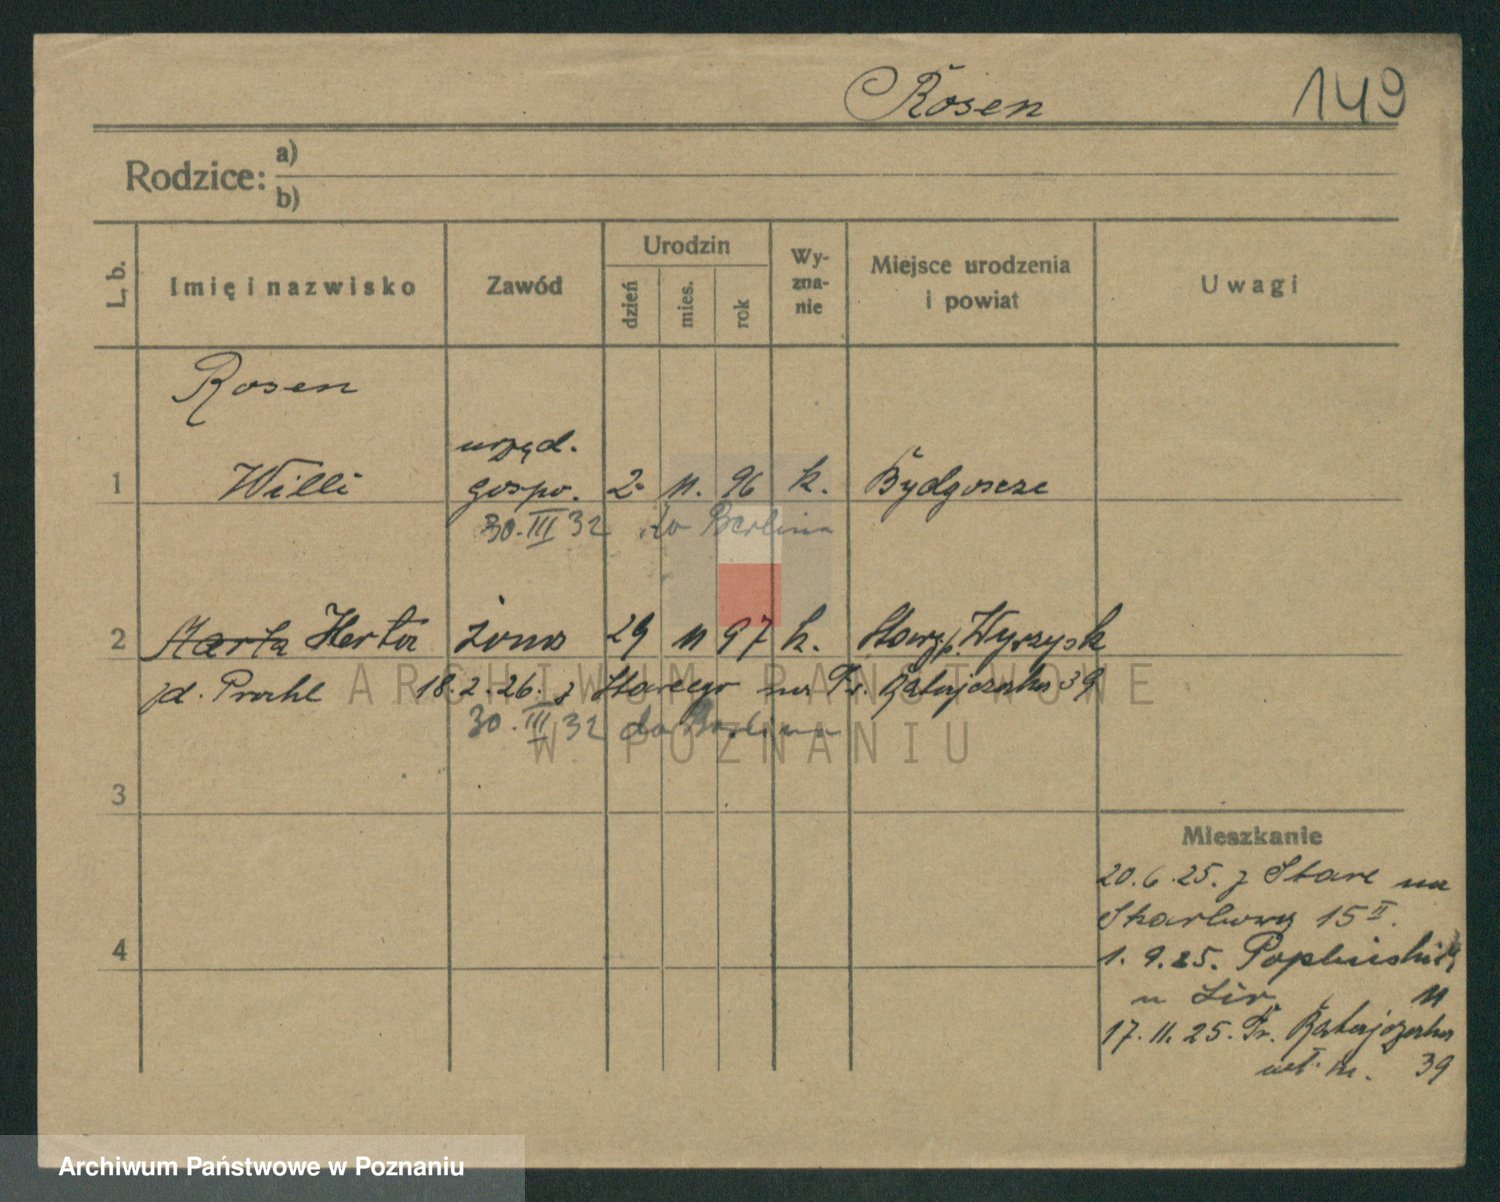 Rosen 149
Rodzice: a)
b)
L. b. Imię i nazwisko Zawód Urodzin dzień mies. rok Wyznanie Miejsce urodzenia i powiat Uwagi
Rosen
urzęd.
1 Willi gospo. 2 11. 96 k. Bydgoszcz
30. III 32 do Berlina
2 Marta Herta żona 29 11 97 k. Wyrzysk
18. 2. 26. z Starego na Fr. Ratajczaka 39
30. III 32 do Berlina
ARCHIWUM PAŃSTWOWE
W POZNANIU
3
Mieszkanie
20. 6. 25. z Stare na
Skarbowa 15 II.
4
1. 9. 25.
u 11
17. 11. 25. Fr. Ratajczaka
39
Archiwum Państwowe w Poznaniu